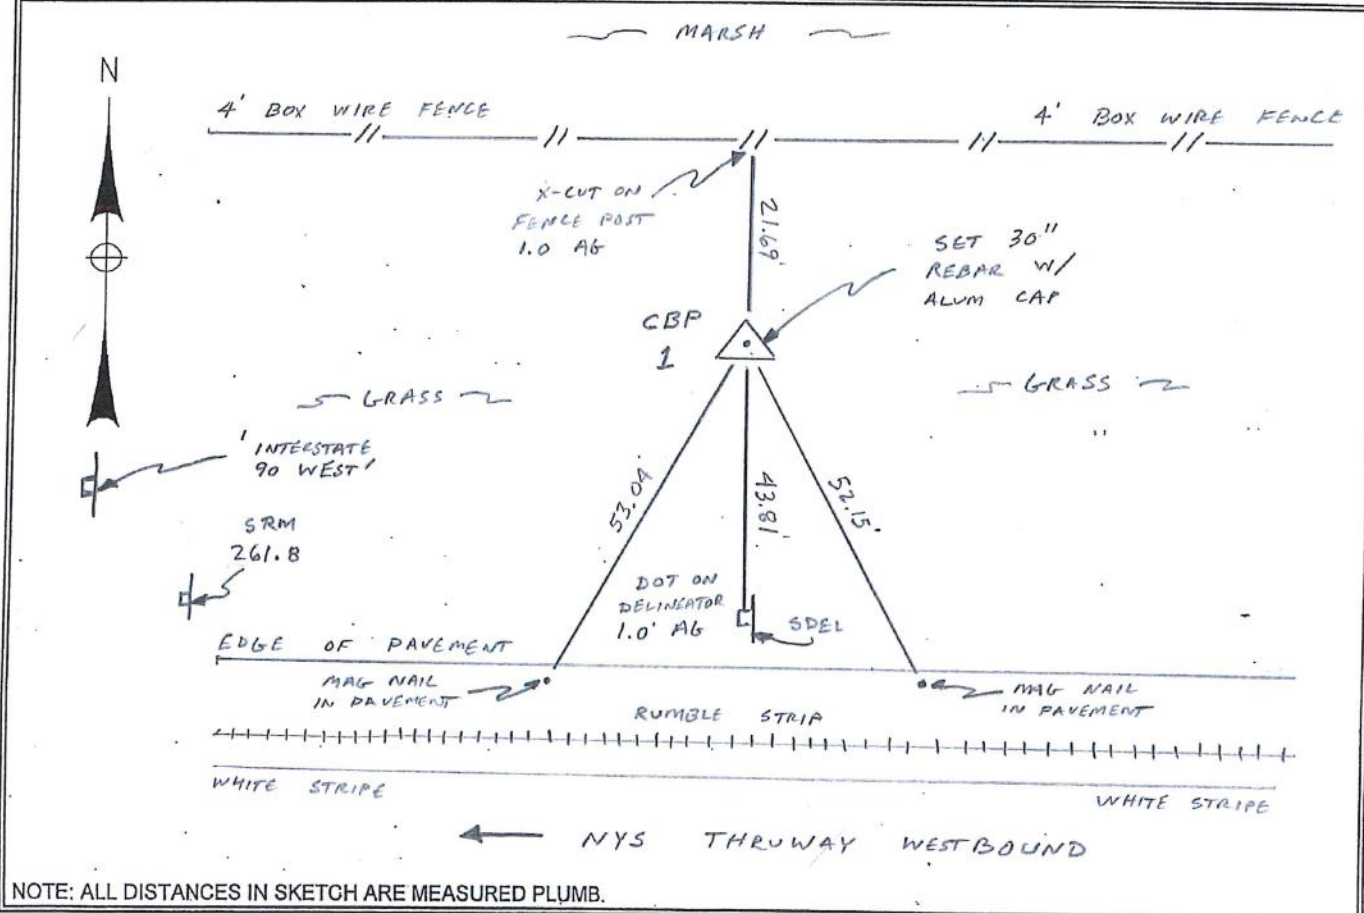 MARSH
N
4' BOX WIRE FENCE
4' BOX WIRE FENCE
X-CUT ON
FENCE POST
1.0 AG
21.69'
SET 30"
REBAR W/
ALUM CAP
CBP
1
GRASS
GRASS
'INTERSTATE
90 WEST'
53.04'
43.81'
52.15'
SRM
261.8
DOT ON
DELINEATOR
1.0' AG
SDEL
EDGE OF PAVEMENT
MAG NAIL
IN PAVEMENT
MAG NAIL
IN PAVEMENT
RUMBLE STRIP
WHITE STRIPE
WHITE STRIPE
NYS THRUWAY WESTBOUND
NOTE: ALL DISTANCES IN SKETCH ARE MEASURED PLUMB.